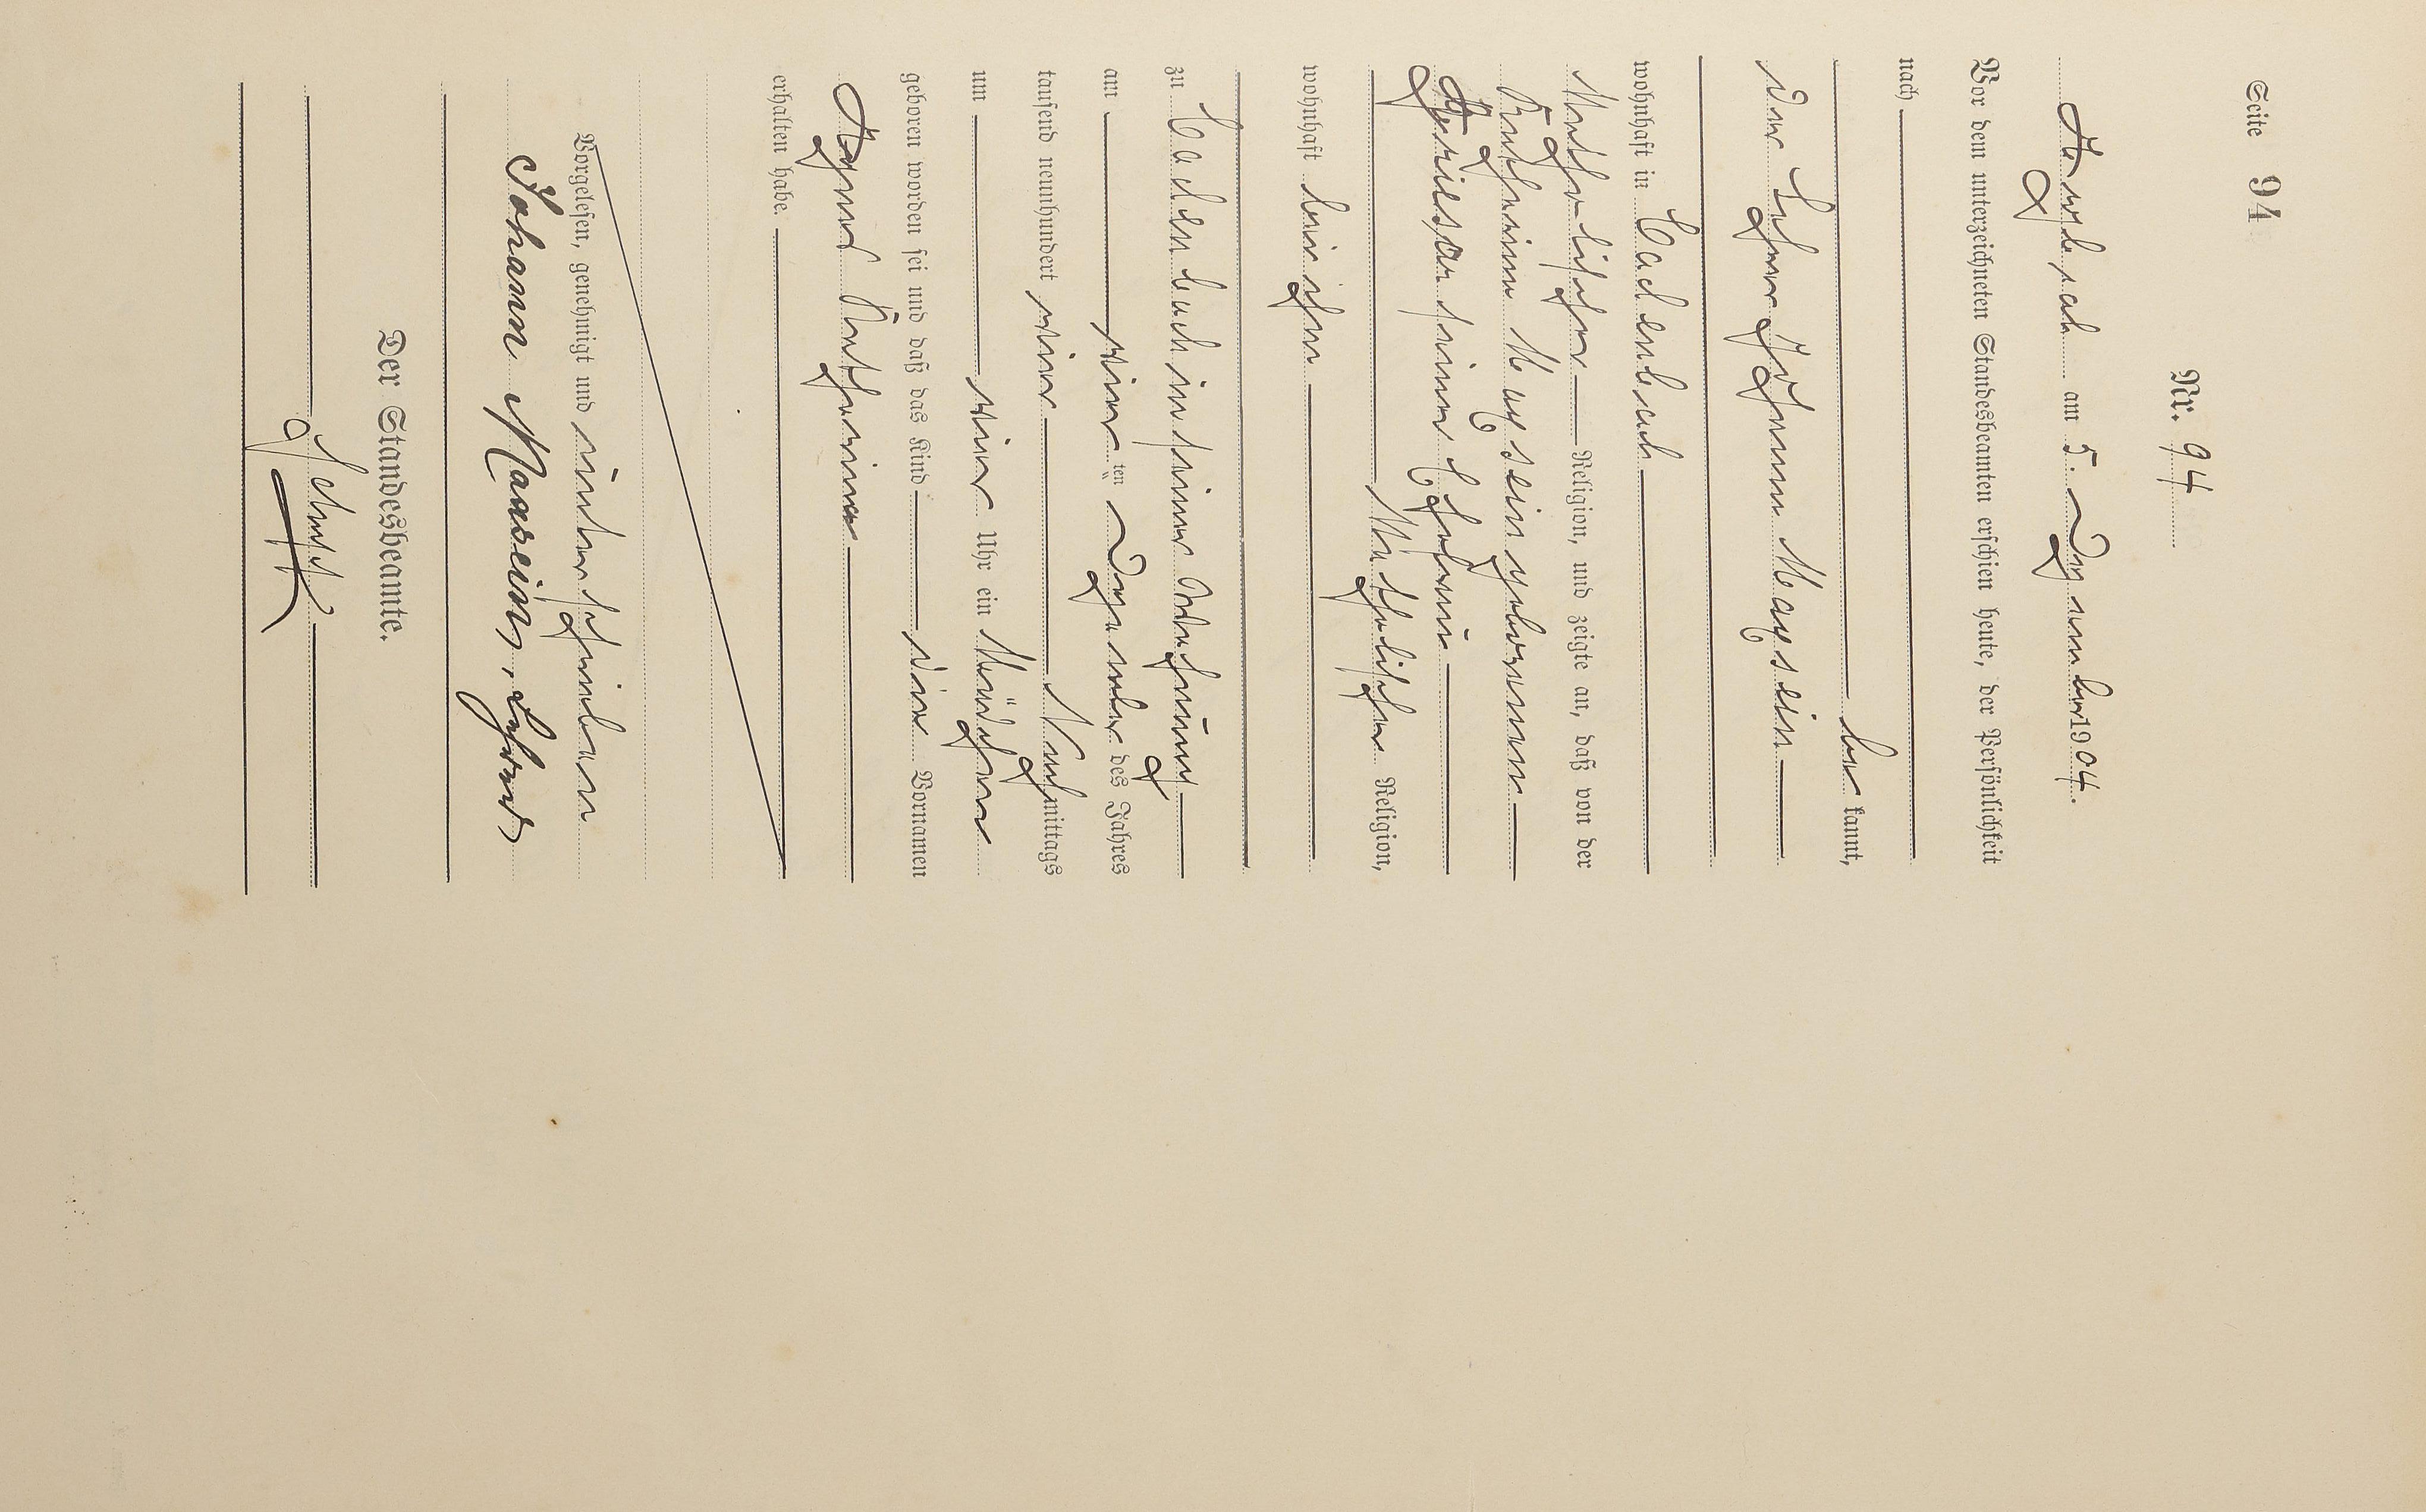 Seite 94
Nr. 94
Arzbach am 5. Dezember 1904.
Vor dem unterzeichneten Standesbeamten erschien heute, der Persönlichkeit
nach
be kannt,
der Lehrer Johann Maxsein
wohnhaft in Cadenbach
katholischer Religion, und zeigte an, daß von der
Katharina Maxsein geborenen
Griesar seiner Ehefrau
katholischer Religion,
wohnhaft bei ihm
zu Cadenbach in seiner Wohnung
am vier ten Dezember des Jahres
tausend neunhundert vier Nachmittags
um vier Uhr ein Mädchen
geboren worden sei und daß das Kind die Vornamen
Agnes Katharina
erhalten habe.
Vorgelesen, genehmigt und unterschrieben
Johann Maxsein, Lehrer
Der Standesbeamte.